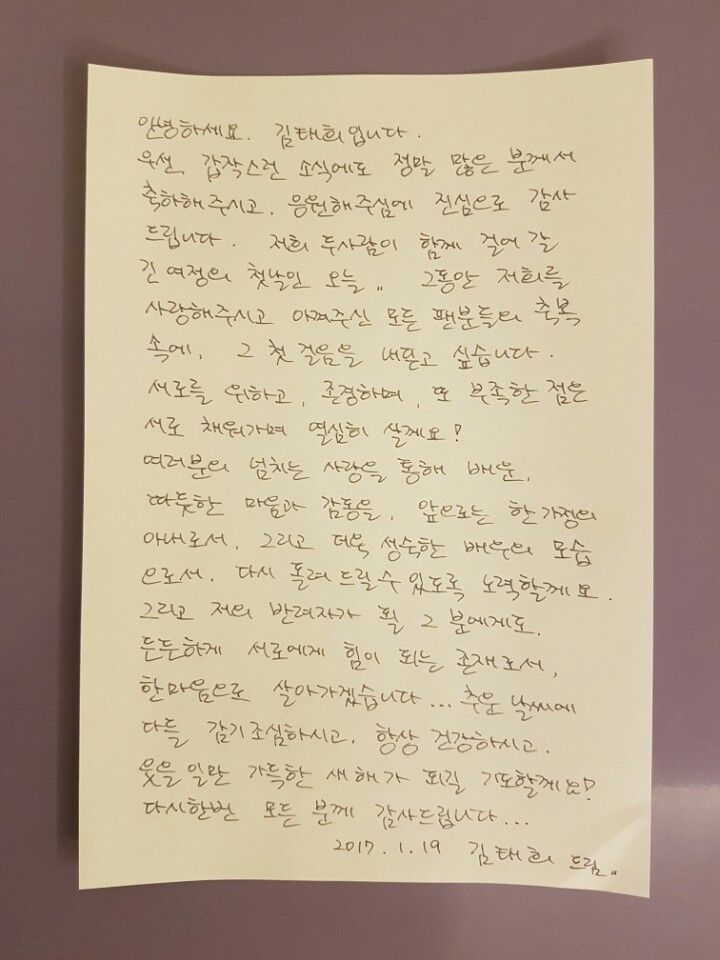 안녕하세요. 김태희입니다.
우선, 갑작스런 소식에도 정말 많은 분께서
축하해주시고, 응원해주심에 진심으로 감사
드립니다. 저희 두사람이 함께 걸어 갈
긴 여정의 첫날인 오늘,, 그동안 저희를
사랑해주시고 아껴주신 모든 팬분들의 축복
속에, 그 첫 걸음을 내딛고 싶습니다.
서로를 위하고, 존경하며, 또 부족한 점은
서로 채워가며 열심히 살게요!
여러분의 넘치는 사랑을 통해 배운,
따뜻한 마음과 감동을, 앞으로는 한 가정의
아내로서, 그리고 더욱 성숙한 배우의 모습
으로서, 다시 돌려 드릴 수 있도록 노력할게요.
그리고 저의 반려자가 될 그 분에게도,
든든하게 서로에게 힘이 되는 존재로서,
한마음으로 살아가겠습니다... 추운 날씨에
다들 감기조심하시고, 항상 건강하시고,
웃을 일만 가득한 새해가 되길 기도할게요!
다시한번 모든 분께 감사드립니다...
2017. 1. 19 김태희 드림,,